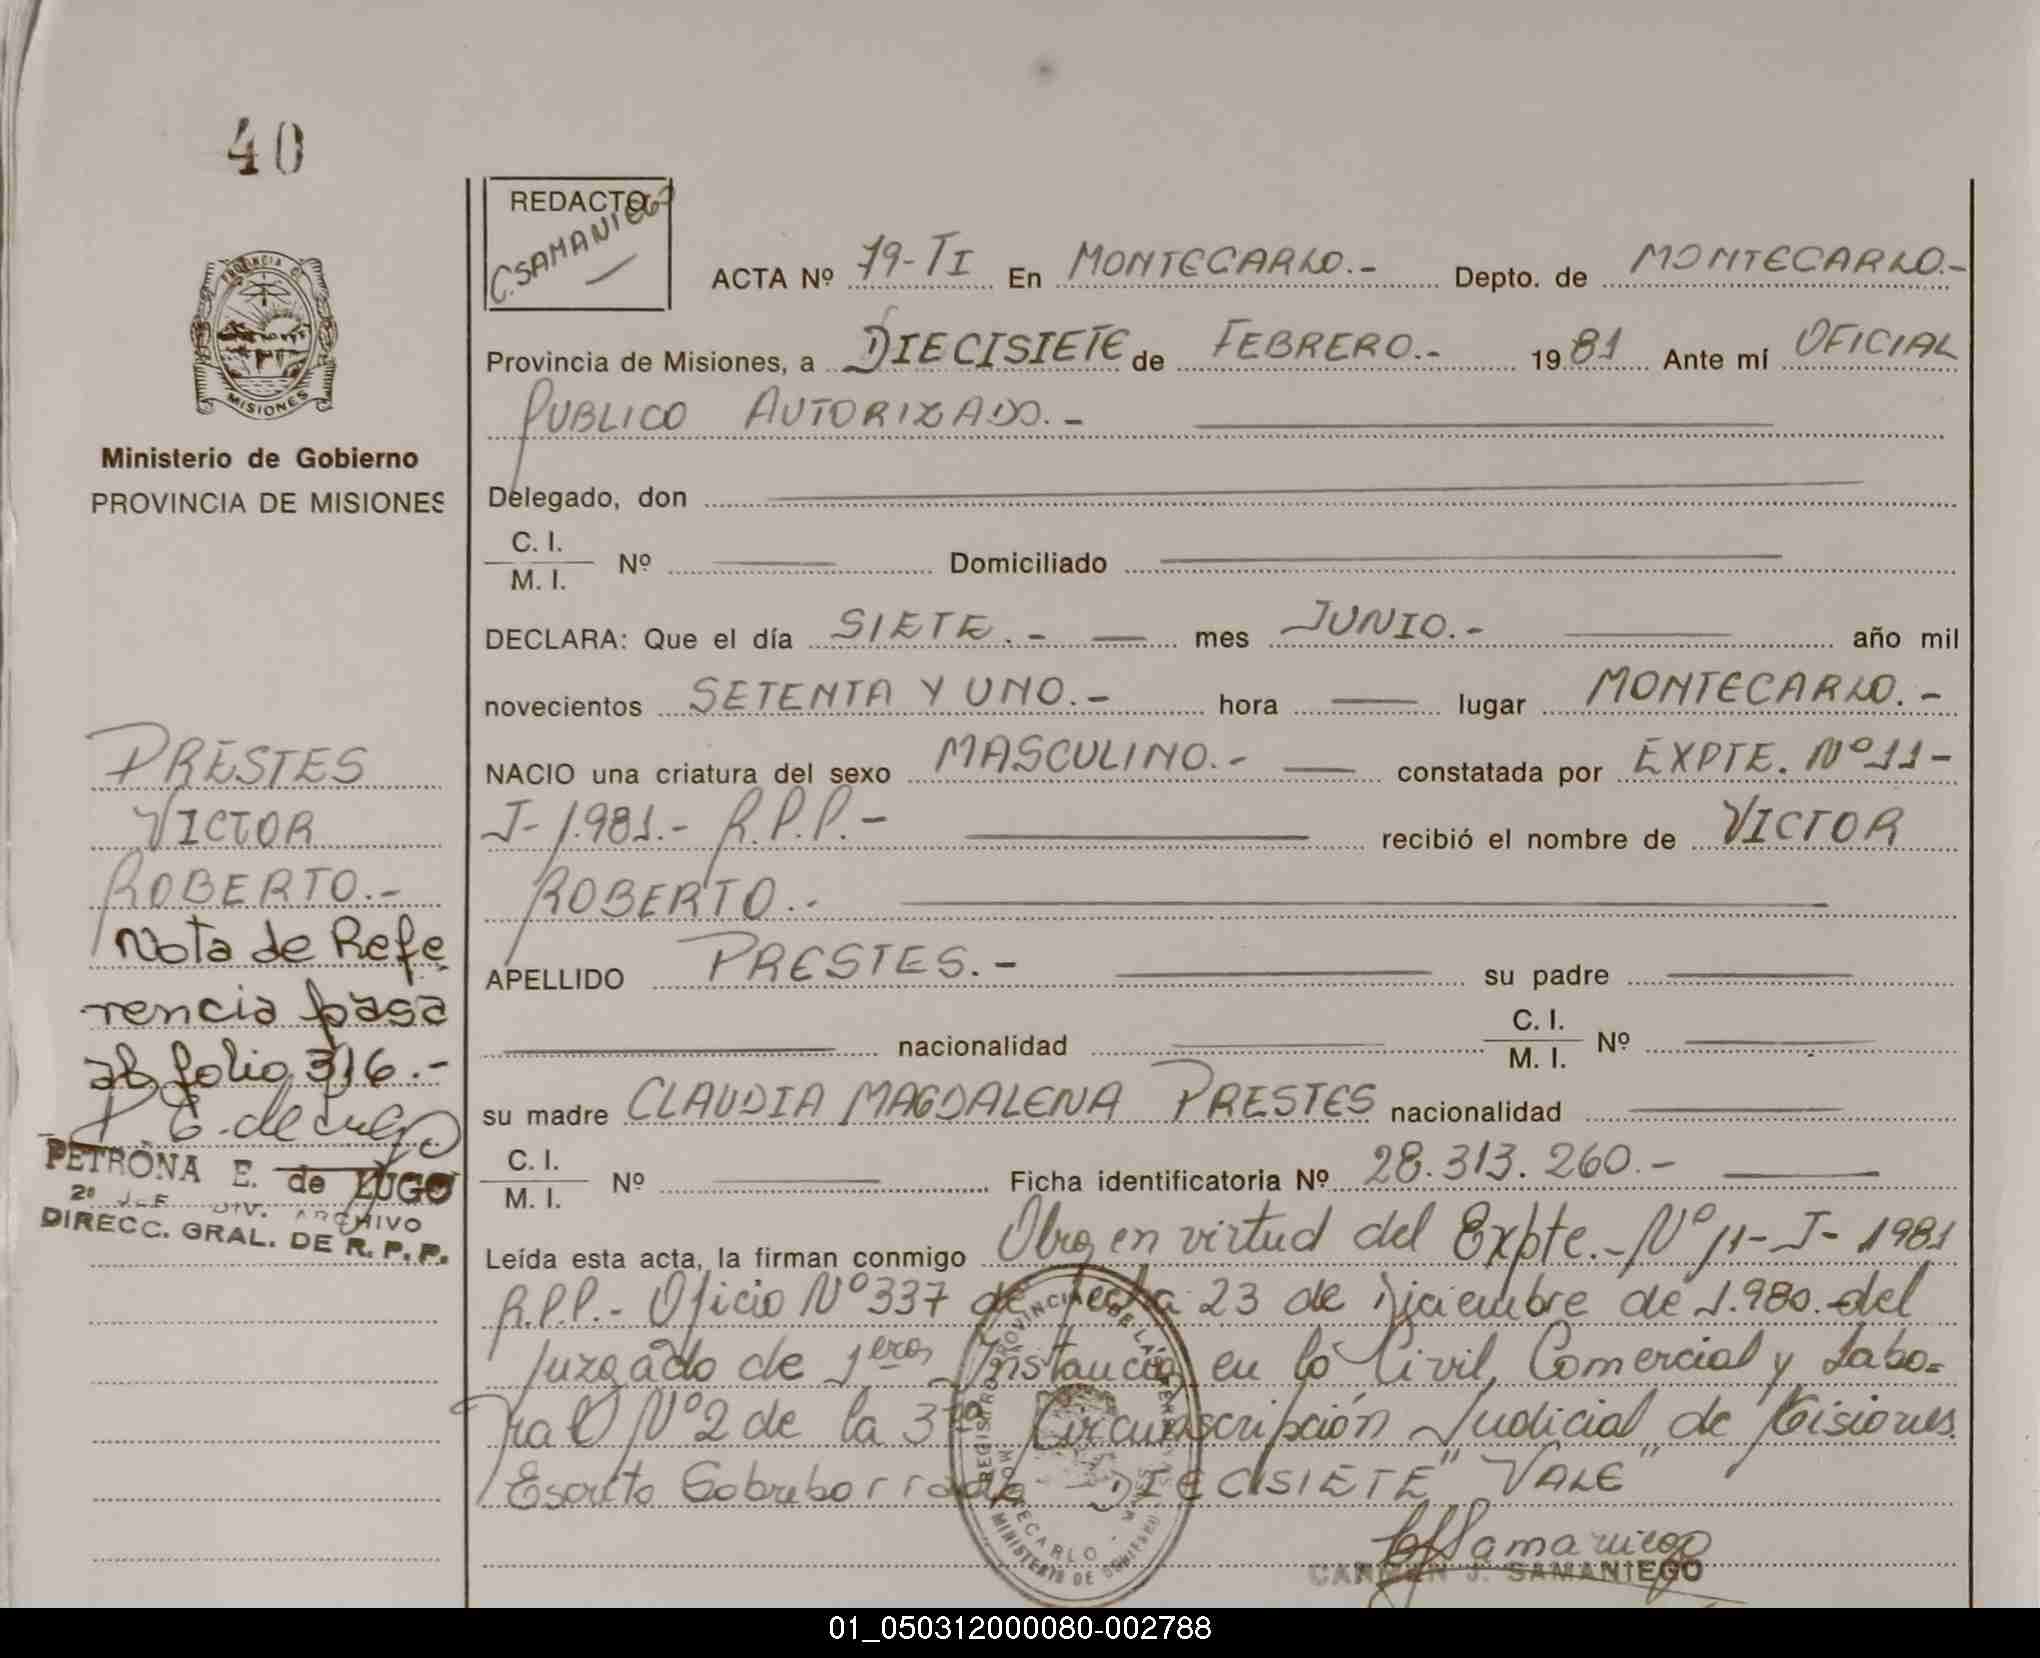 40
REDACTO
C. SAMANIEGO
ACTA Nº 79-TI En MONTECARLO.- Depto. de MONTECARLO.-
Provincia de Misiones, a DIECISIETE de FEBRERO.- 1981 Ante mí OFICIAL
PUBLICO AUTORIZADO.-
Delegado, don
C. I.
M. I. Nº Domiciliado
DECLARA: Que el día SIETE.- mes JUNIO.- año mil
novecientos SETENTA Y UNO.- hora lugar MONTECARLO.-
NACIO una criatura del sexo MASCULINO.- constatada por EXPTE. Nº 11-
J-1.981.- R.P.P.- recibió el nombre de VICTOR
ROBERTO.-
APELLIDO PRESTES.- su padre
nacionalidad C. I.
M. I. Nº
su madre CLAUDIA MAGDALENA PRESTES nacionalidad
C. I.
M. I. Nº Ficha identificatoria Nº 28.313.260.-
Leída esta acta, la firman conmigo Obra en virtud del Expte.- Nº 11-J-1981
R.P.P.- Oficio Nº 337 de fecha 23 de Diciembre de 1.980. del
Juzgado de 1era Instancia en lo Civil, Comercial y Labo=
ral Nº 2 de la 3ra Circunscripción Judicial de Misiones.
Escrito Sobreborrado "DIECISIETE" "VALE"
CSamaniego
CARMEN J. SAMANIEGO
PROVINCIA DE
MISIONES
Ministerio de Gobierno
PROVINCIA DE MISIONES
PRESTES
VICTOR
ROBERTO.-
Nota de Refe
rencia pasa
al folio 316.-
P E. de Lugo
PETRONA E. de LUGO
2º JEF. DIV. ARCHIVO
DIRECC. GRAL. DE R. P. P.
REGISTRO PROVINCIAL DE LAS PERSONAS
MONTECARLO - MNES
MINISTERIO DE GOBIERNO
01_050312000080-002788